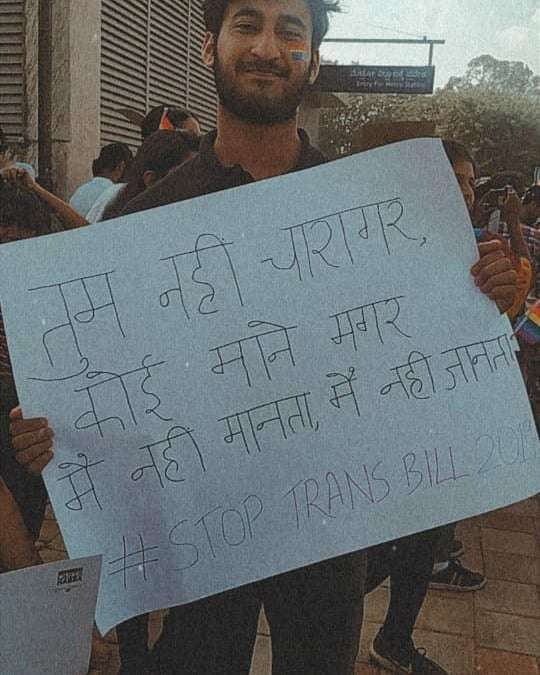 Entry For Metro Station
तुम नहीं चारागर,
कोई माने मगर
मैं नहीं मानता, मैं नही जानता
#STOP TRANS BILL 2019